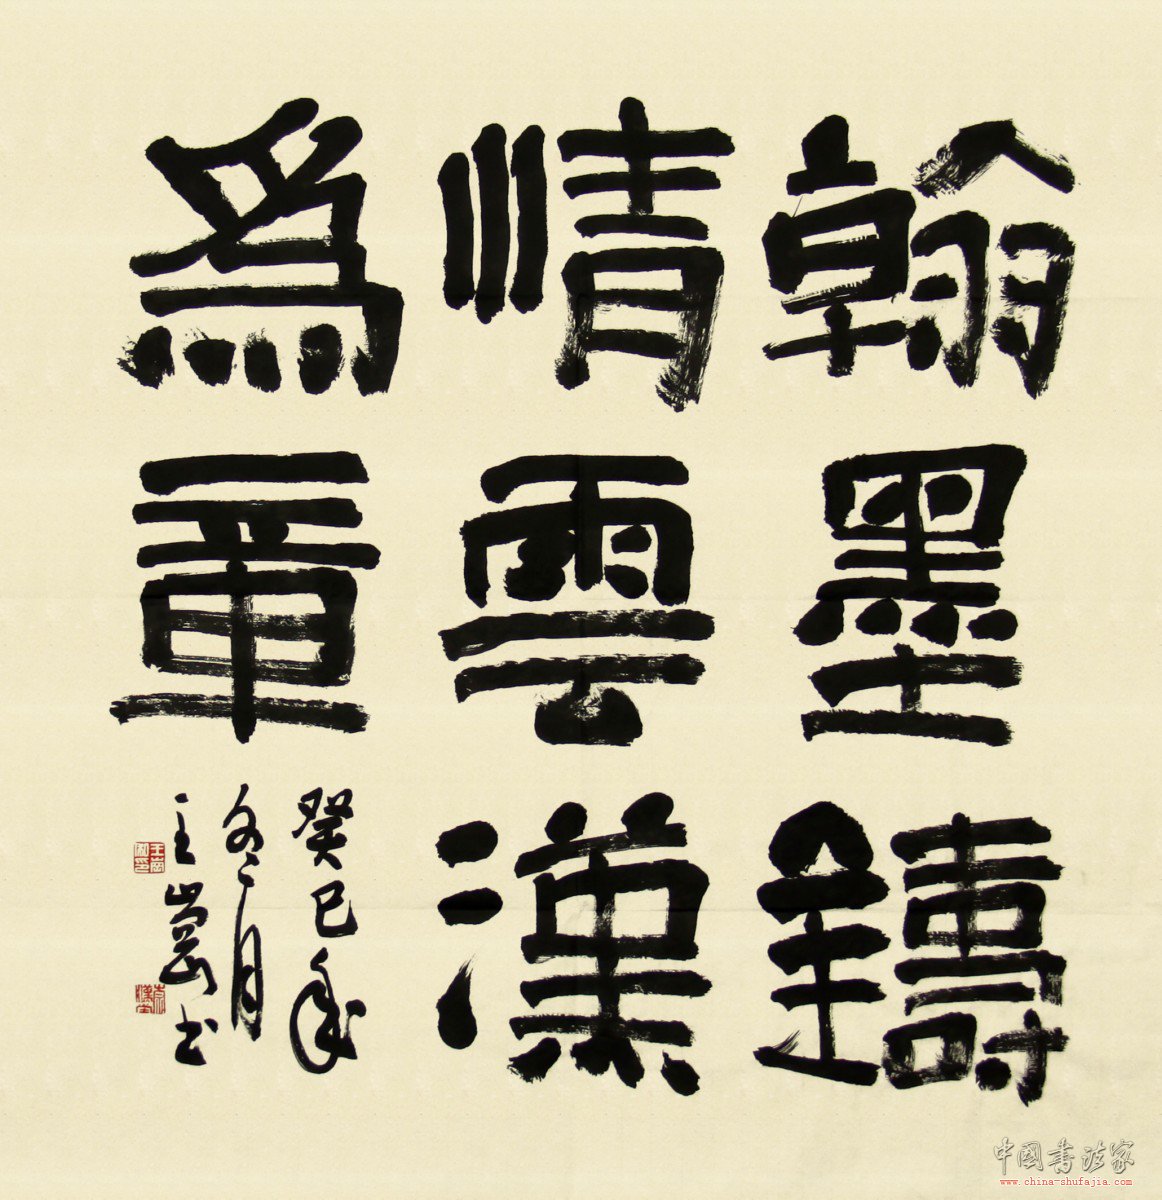 翰墨鑄
情雲漢
為章
癸巳年
冬月
王崗书
中国书法家
www.china-shufajia.com